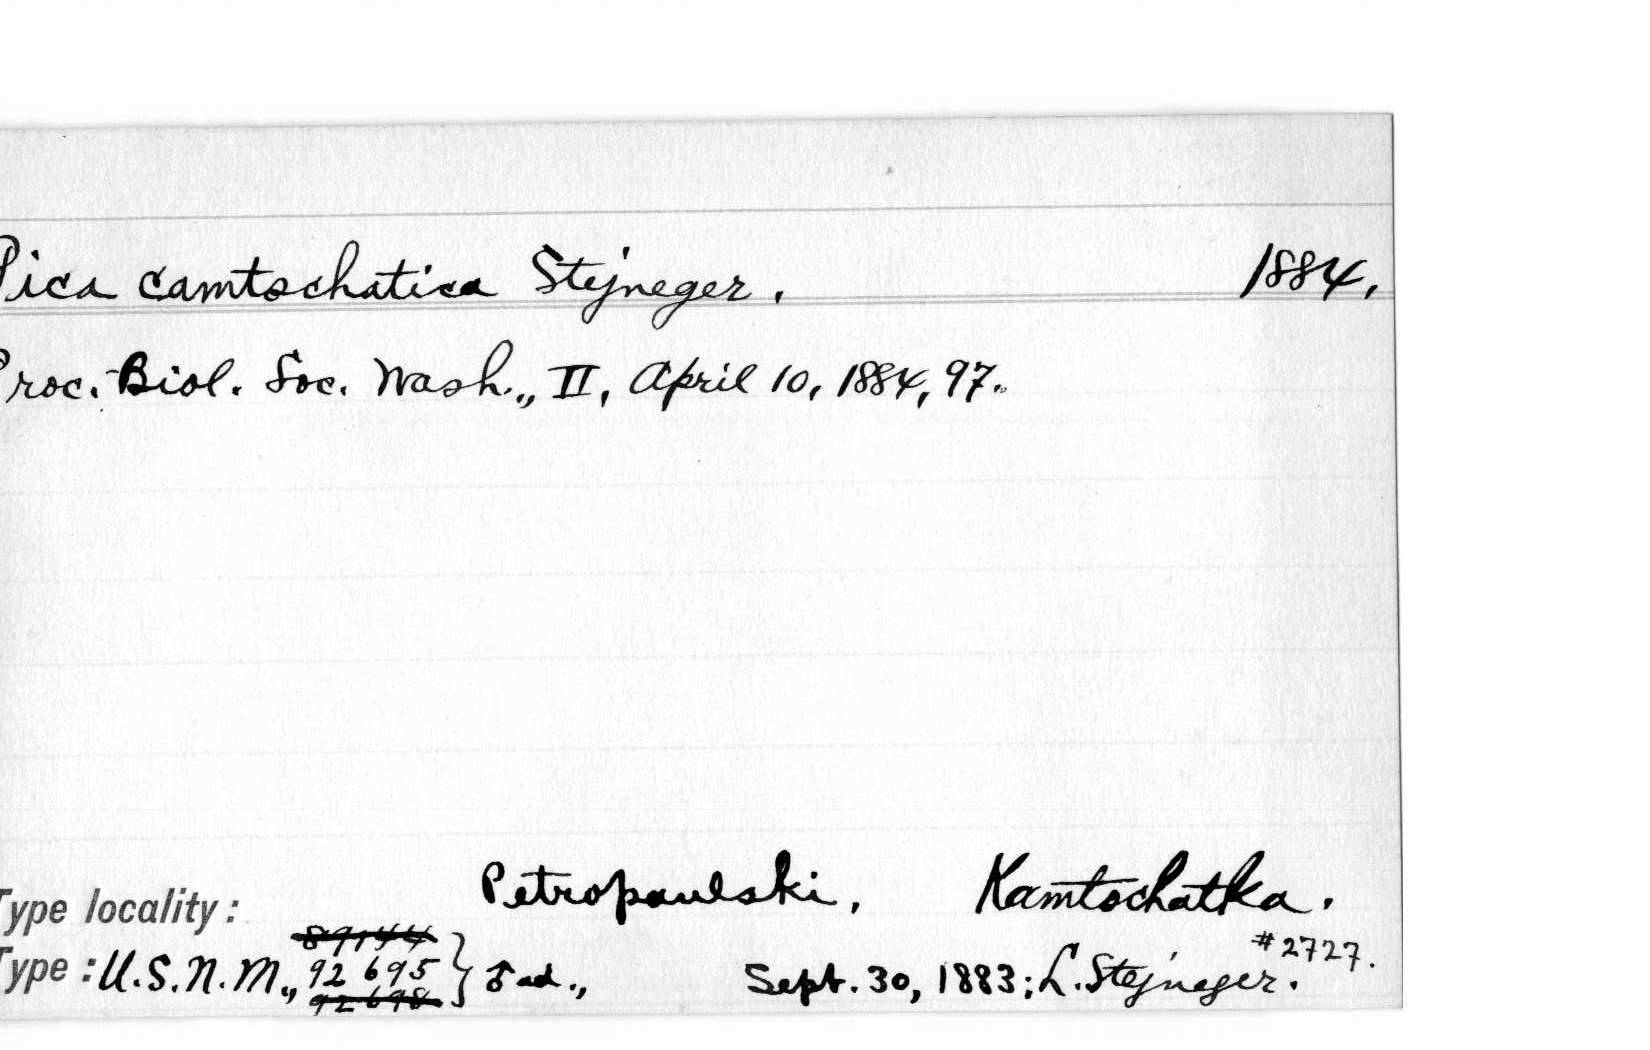 Pica camtschatica Stejneger. 1884.
Proc. Biol. Soc. Wash., II, April 10, 1884, 97.
Type locality: Petropaulski, Kamtschatka.
89144
Type: U.S.N.M., 92695 } ♂ ad., Sept. 30, 1883; L. Stejneger. #2727.
92698